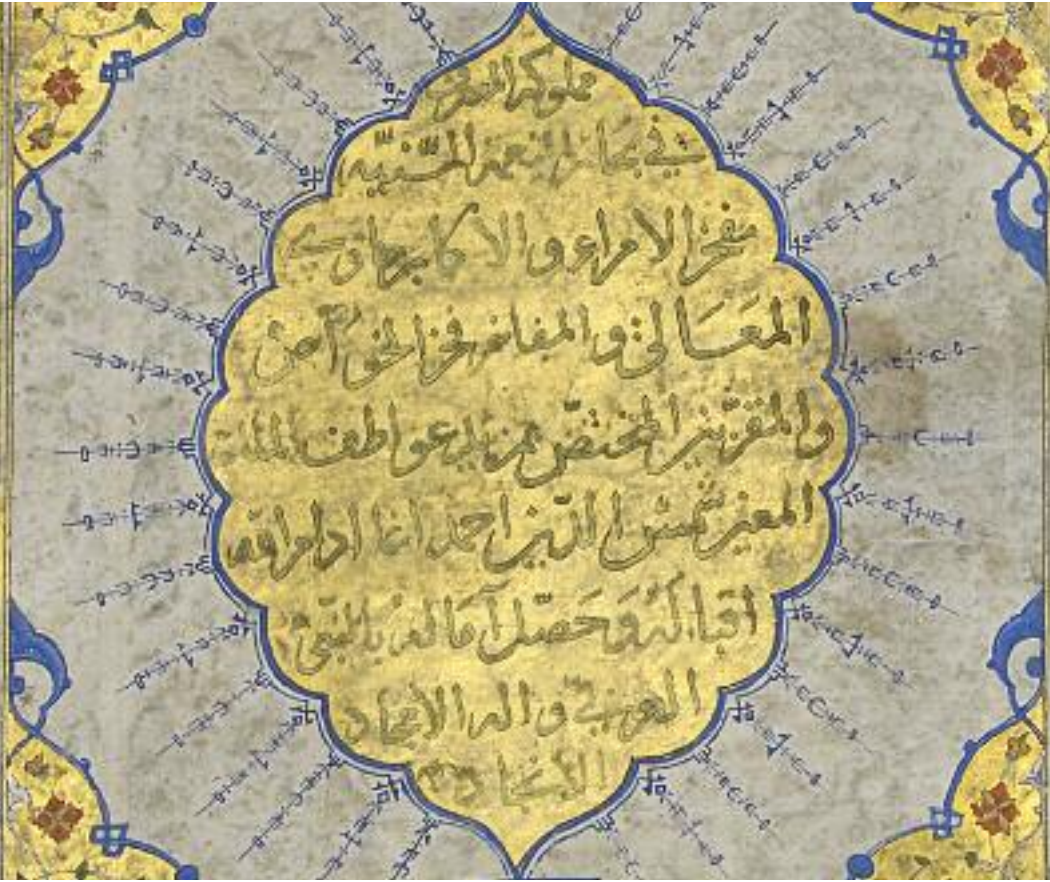 مملوكه المغرق
في بحار النعمة السنية
مفخر الامراء والاكابر حاوي
المعالي والمفاخر فخر الخواص
والمقربين المختص بمزيد عواطف الملك
المعين شمس الدين احمد اغا ادام الله
اقباله وحصل آماله بالنبي
العربي واله الامجاد
الانجاد